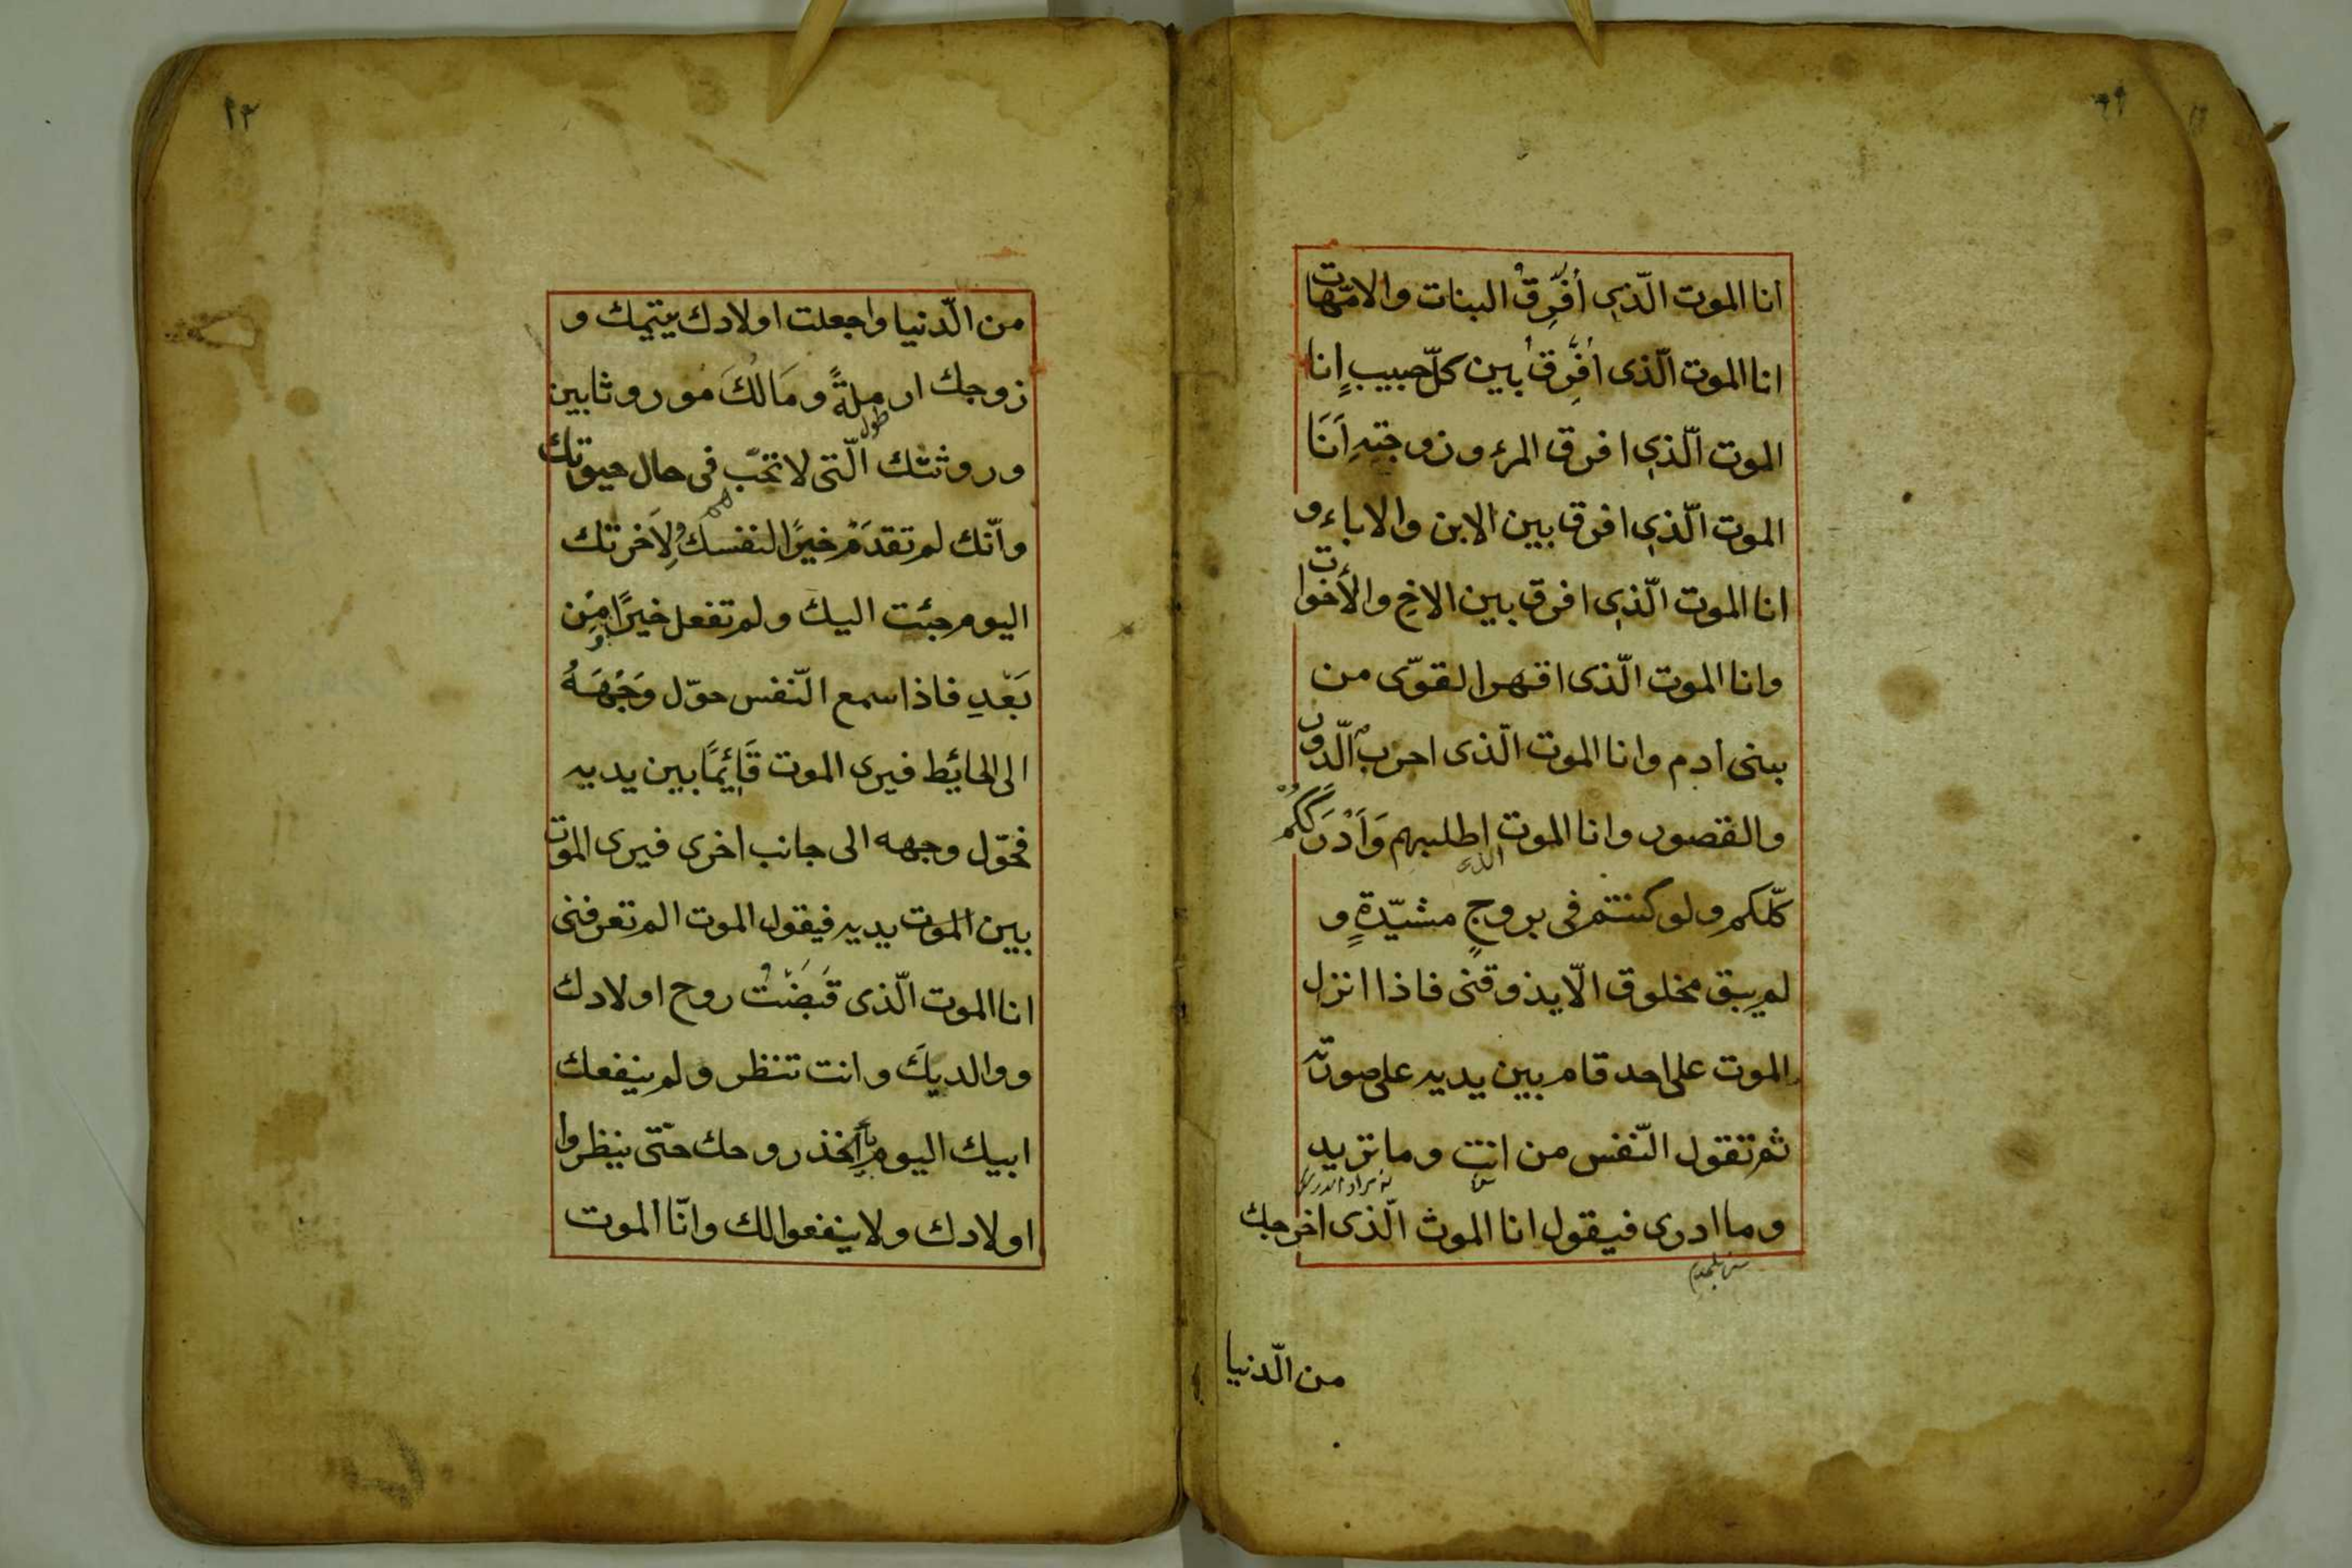 انا الموت الّذي اُفَرِّقُ البنات والامّهات
انا الموت الّذى اُفَرِّقُ بين كلّ حبيبٍ انا
الموت الّذي افرق المرء وزوجتهِ اَنَا
الموت الّذي افرق بين الابن والاباء و
انا الموت الّذي افرق بين الاخ والأخوات
وانا الموت الّذى اقهر القوّى من
بنى ادم وانا الموت الّذى احرب الدّور
والقصور وانا الموت اطلبهم وَاَدْرَككُمْ
كلّكم ولو كنتم فى بروجٍ مشيّدةٍ و
لم يبق مخلوق الّا يذوقنى فاذا انزل
الموت على احد قام بين يديه على صورته
ثم تقول النّفس من انت وما تريد
وما ادرى فيقول انا الموت الّذى اخرجك
من الّدنيا
من الّدنيا واجعلت اولادك يتيمك و
زوجك ارملةً ومَالُكَ موروثا بين
وروثتك الّتى لا تحبّ فى حال حيوتك
وانّك لم تقدَمْ خيرًا لنفسك ولِاَخرتك
اليوم جئت اليك ولم تفعل خيرًا مِنْ
بَعْدِ فاذا سمع النّفس حوّل وَجْهَهُ
الى الحائط فيرى الموت قَائِمًا بين يديه
فحّول وجهه الى جانب اخرى فيرى الموت
بين الموت يديه فيقول الموت الم تعرفنى
انا الموت الّذى قَبَضْتُ روح اولادك
ووالديكَ وانت تنظر ولم ينفعك
ابيك اليوم اخذ روحك حتّى ينظروا
اولادك ولا ينفعوا لك وانّا الموت